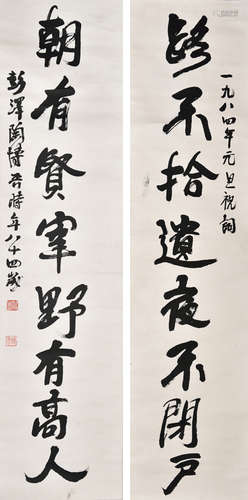 路不拾遺夜不閉戶
一九八四年元旦祝詞
朝有賢宰野有高人
彭澤陶博吾時年八十四歲